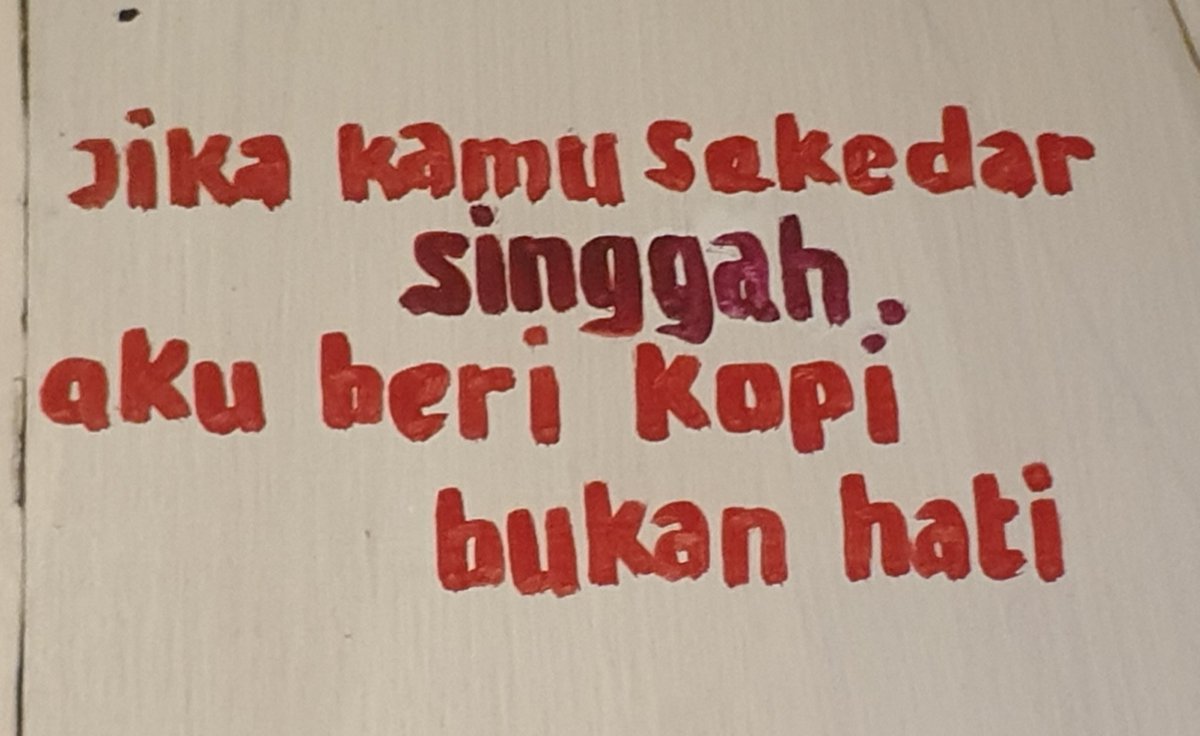 Jika kamu sekedar
singgah.
aku beri kopi
bukan hati